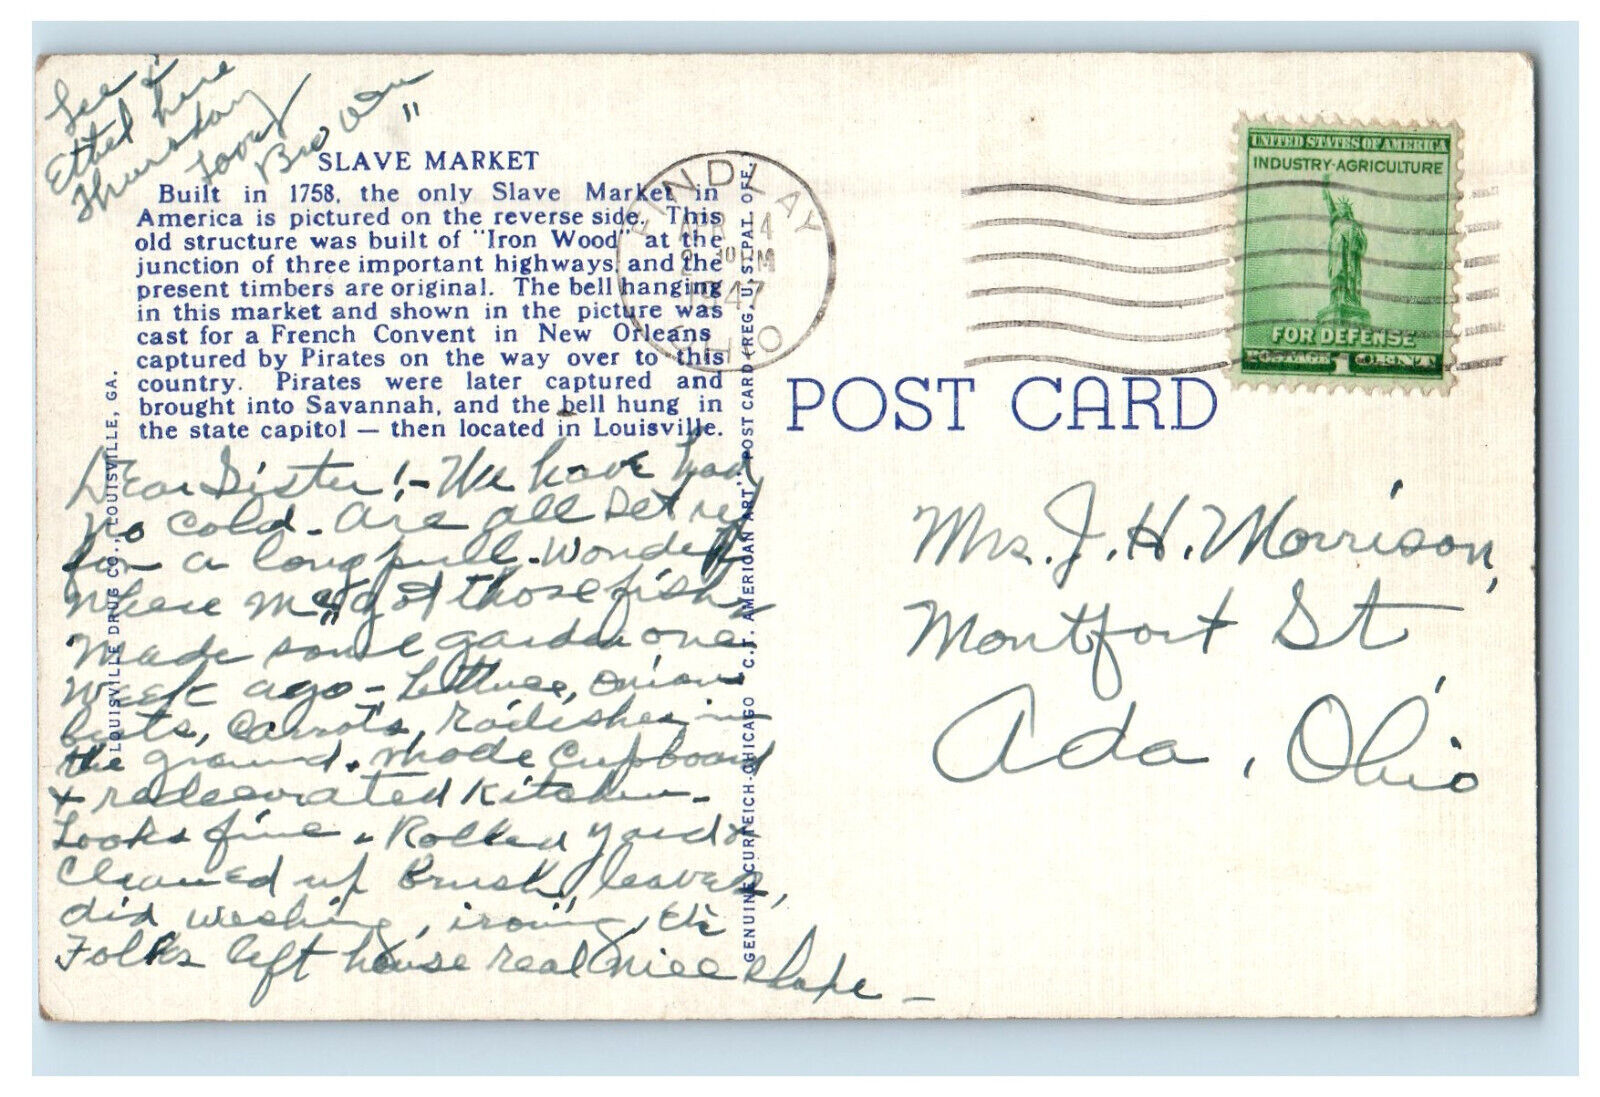 Lee &
Ethel here
Thursday
SLAVE MARKET
Built in 1758, the only Slave Market in
America is pictured on the reverse side. This
old structure was built of "Iron Wood" at the
junction of three important highways, and the
present timbers are original. The bell hanging
in this market and shown in the picture was
cast for a French Convent in New Orleans
captured by Pirates on the way over to this
country. Pirates were later captured and
brought into Savannah, and the bell hung in
the state capitol — then located in Louisville.
Dear Sister! - We have had
no cold - are all set
for a long pull. Wonder
where got those fish
Made some garden one
week ago - Lettuce, onions
beets, carrots, radishes in
the ground. Made Cupboard
& redecorated Kitchen -
Looks fine. Rolled yard &
cleaned up brush, leaves,
did washing, ironing, etc
Folks left house real nice shape -
LOUISVILLE DRUG CO., LOUISVILLE, GA.
GENUINE CURTEICH-CHICAGO C.T. AMERICAN ART POST CARD (REG. U.S. PAT. OFF.)
FINDLAY
APR 14
2 30 PM
1947
OHIO
UNITED STATES OF AMERICA
INDUSTRY-AGRICULTURE
FOR DEFENSE
POSTAGE 1 CENT
POST CARD
Mrs. J. H. Morrison,
Montfort St
Ada, Ohio